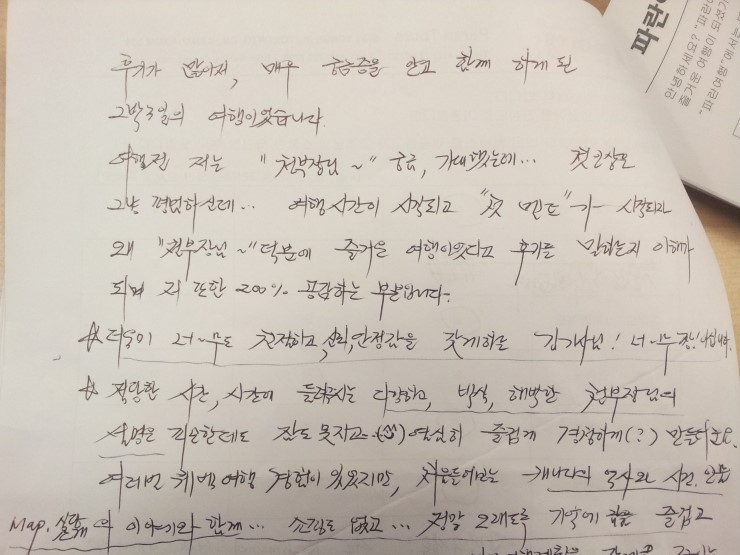 후기가 많아서, 매우 궁금증을 안고 함께 하게 된
2박3일의 여행이었습니다
여행전 저는 "천부장님~" 궁금, 기대했는데... 첫인상은
그냥 평범하신데... 여행시간이 시작되고 "꽃 멘트"가 시작되자
왜 "천부장님~"덕분에 즐거운 여행이었다고 후기를 말하는지 이해가
되며 저 또한 200% 공감하는 부분입니다.
더욱이 너~무도 친절하고, 신뢰, 안정감을 갖게하는 김기사님! 너~무 짱!이십니다.
적당한 시간, 시간에 들려주시는 다양하고, 박식, 해박한 천부장님의
설명은 피곤한데도 잠도 못자고 열심히 즐겁게 경청하게(?) 만들더군요.
여러번 퀘벡여행 경험이 있었지만, 처음들어보는 캐나다의 역사와 사건, 인물
Map. 의 이야기와 함께... 손짓도 없고... 정말 오래도록 기억에 남을 즐겁고
파란
안녕하세요? "파란
즐거운 여행이 되셨
"파란여행"에서는